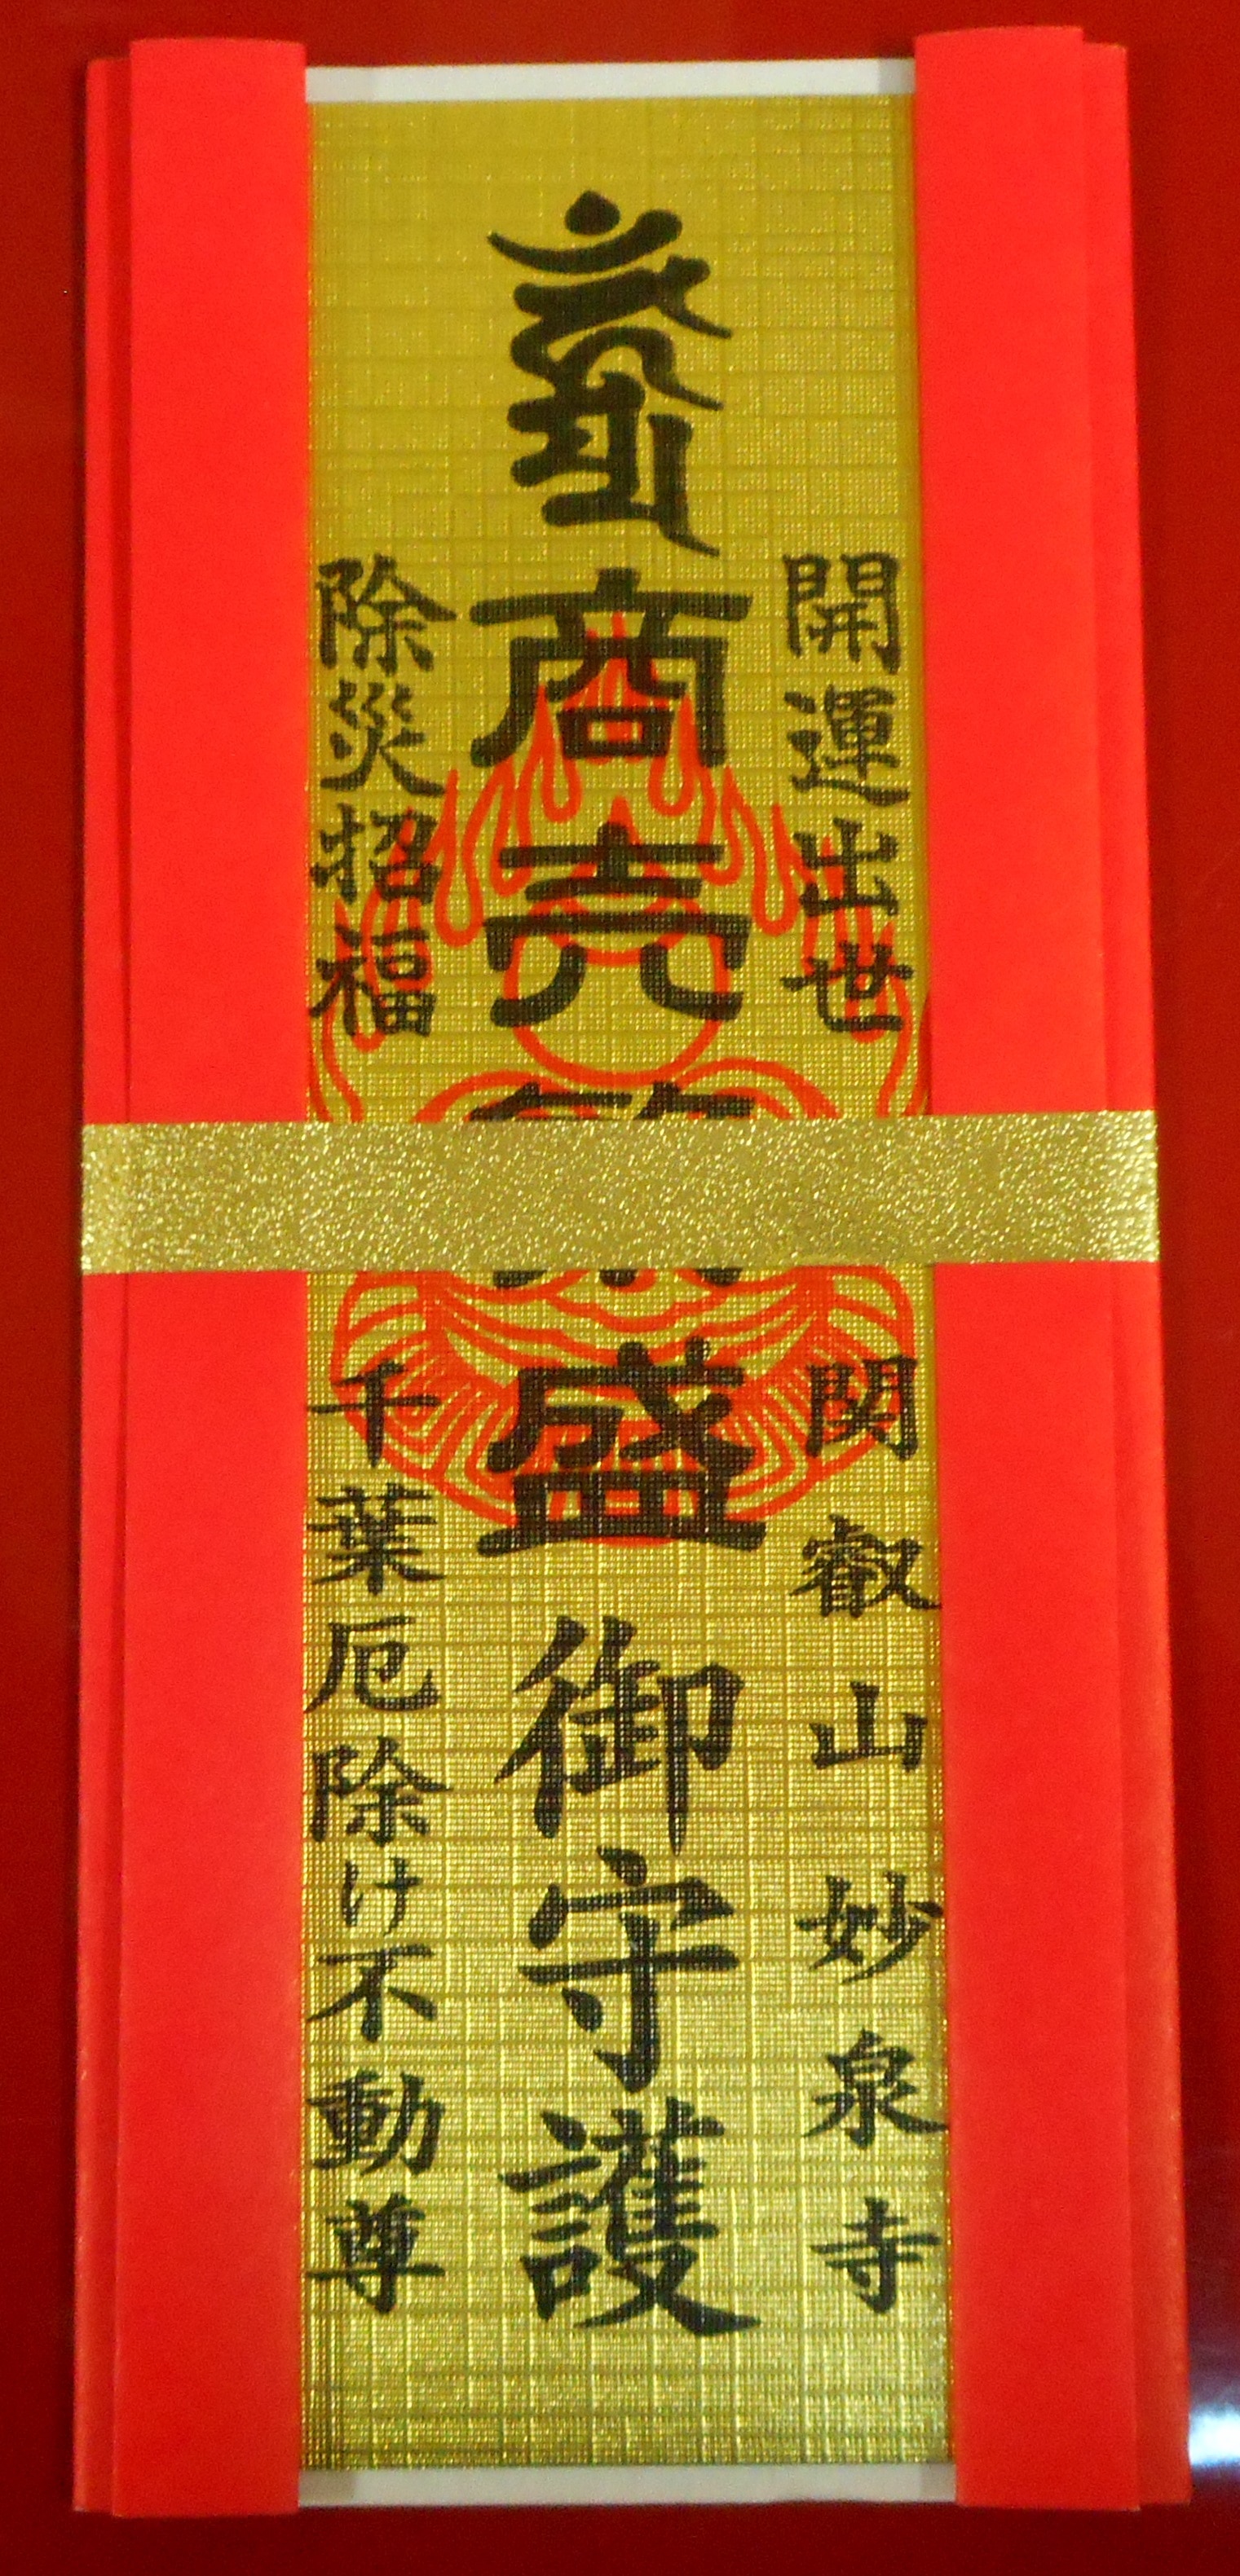 開運出世
関叡山妙泉寺
商売
盛御守護
除災招福
千葉厄除け不動尊